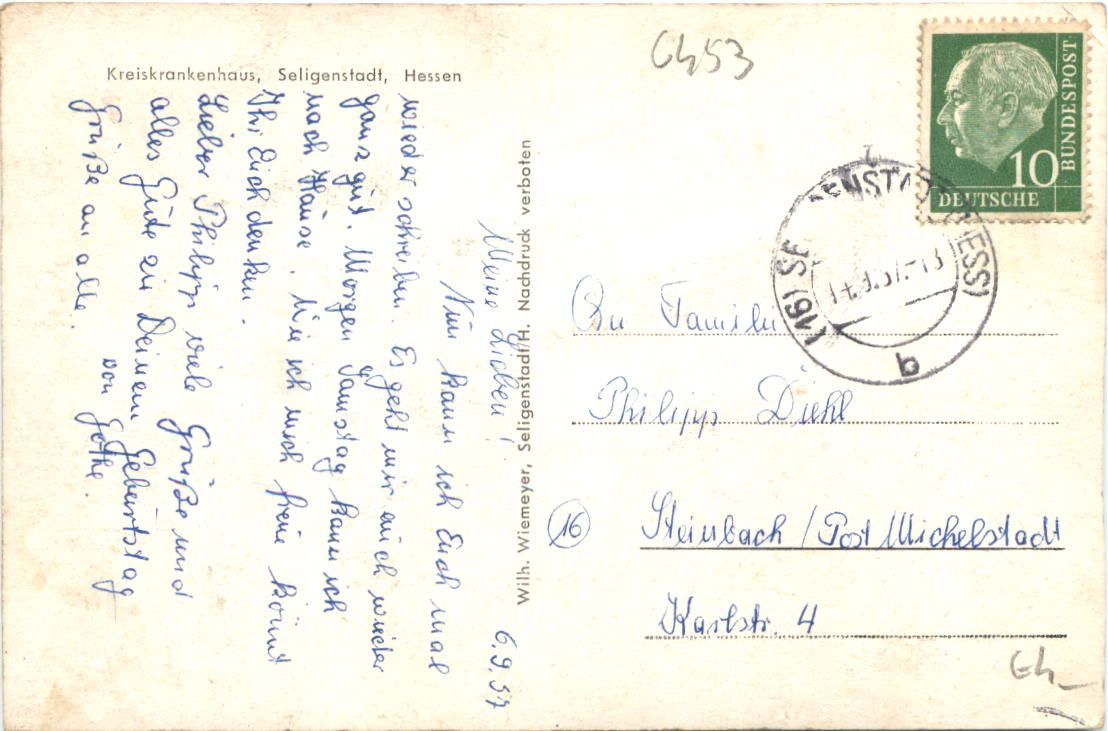 6453
Kreiskrankenhaus, Seligenstadt, Hessen
6.9.57
Meine Lieben!
Nun kann ich Euch mal
wieder schreiben. Es geht mir auch wieder
ganz gut. Morgen Samstag kann ich
nach Hause. Wie ich mich freu könnt
Ihr Euch denken.
Lieber Philipp viele Grüße und
alles Gute zu Deinem Geburtstag
von Gothe.
Grüße an alle.
Wilh. Wiemeyer, Seligenstadt/H. Nachdruck verboten
DEUTSCHE
BUNDESPOST
10
(16) SE ENSTADT (HESS)
9.57.-13
b
An Familie
Philipp Diehl
16
Steinbach / Post Michelstadt
Karlstr. 4